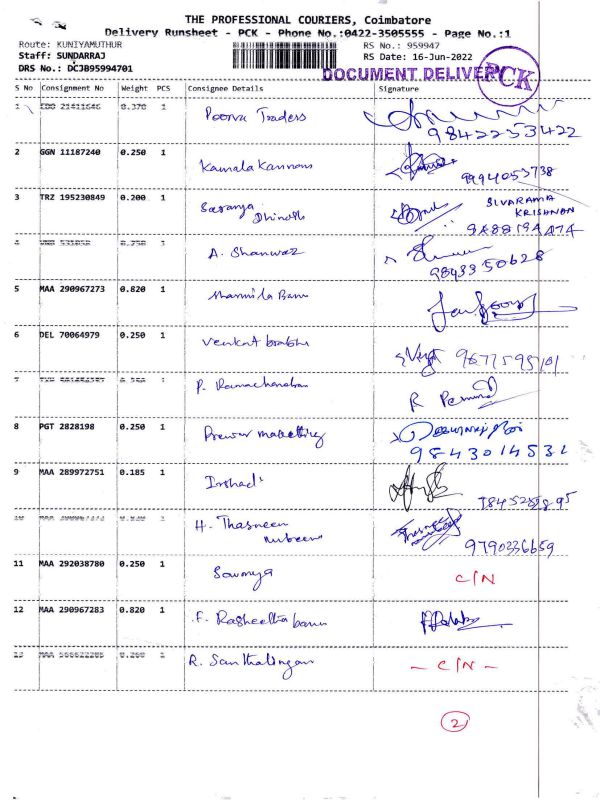 THE PROFESSIONAL COURIERS, Coimbatore
Delivery Runsheet - PCK - Phone No.:0422-3505555 - Page No.:1
Route: KUNIYAMUTHUR RS No.: 959947
Staff: SUNDARRAJ RS Date: 16-Jun-2022
DRS No.: DCJB95994701 DOCUMENT DELIVER PCK
S No Consignment No Weight PCS Consignee Details Signature
1 21411646 0.370 1 Poorva Traders
9842253422
2 GGN 11187240 0.250 1 Kamala Kannan
9994053738
3 TRZ 195230849 0.200 1 Saranya SIVARAMA
Dhinesh KRISHNAN
9488194474
A. Shanwaz
9843350628
5 MAA 290967273 0.820 1 Sharmila Banu
6 DEL 70064979 0.250 1 Venkat brabhu
9677595101
P. Ramachandran
R
8 PGT 2828198 0.250 1 marketting
9843014531
9 MAA 289972751 0.185 1 Irshad
H. Thasneen
9790336659
11 MAA 292038780 0.250 1 Sowmya C/N
12 MAA 290967283 0.820 1 F. Rasheetha banu
R. Santhalingam - C/N -
2